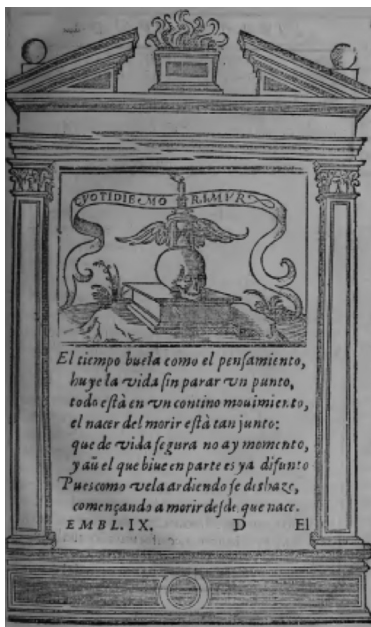 QVOTIDIE MORIMVR
El tiempo buela como el penſamiento,
huye la vida ſin parar vn punto,
todo eſtà en vn contino mouimiento,
el nacer del morir eſtà tan junto:
que de vida ſegura no ay momento,
y aũ el que biue en parte es ya difunto
Pues como vela ardiendo ſe deshaze,
començando a morir deſde que nace.
EMBL. IX. D El